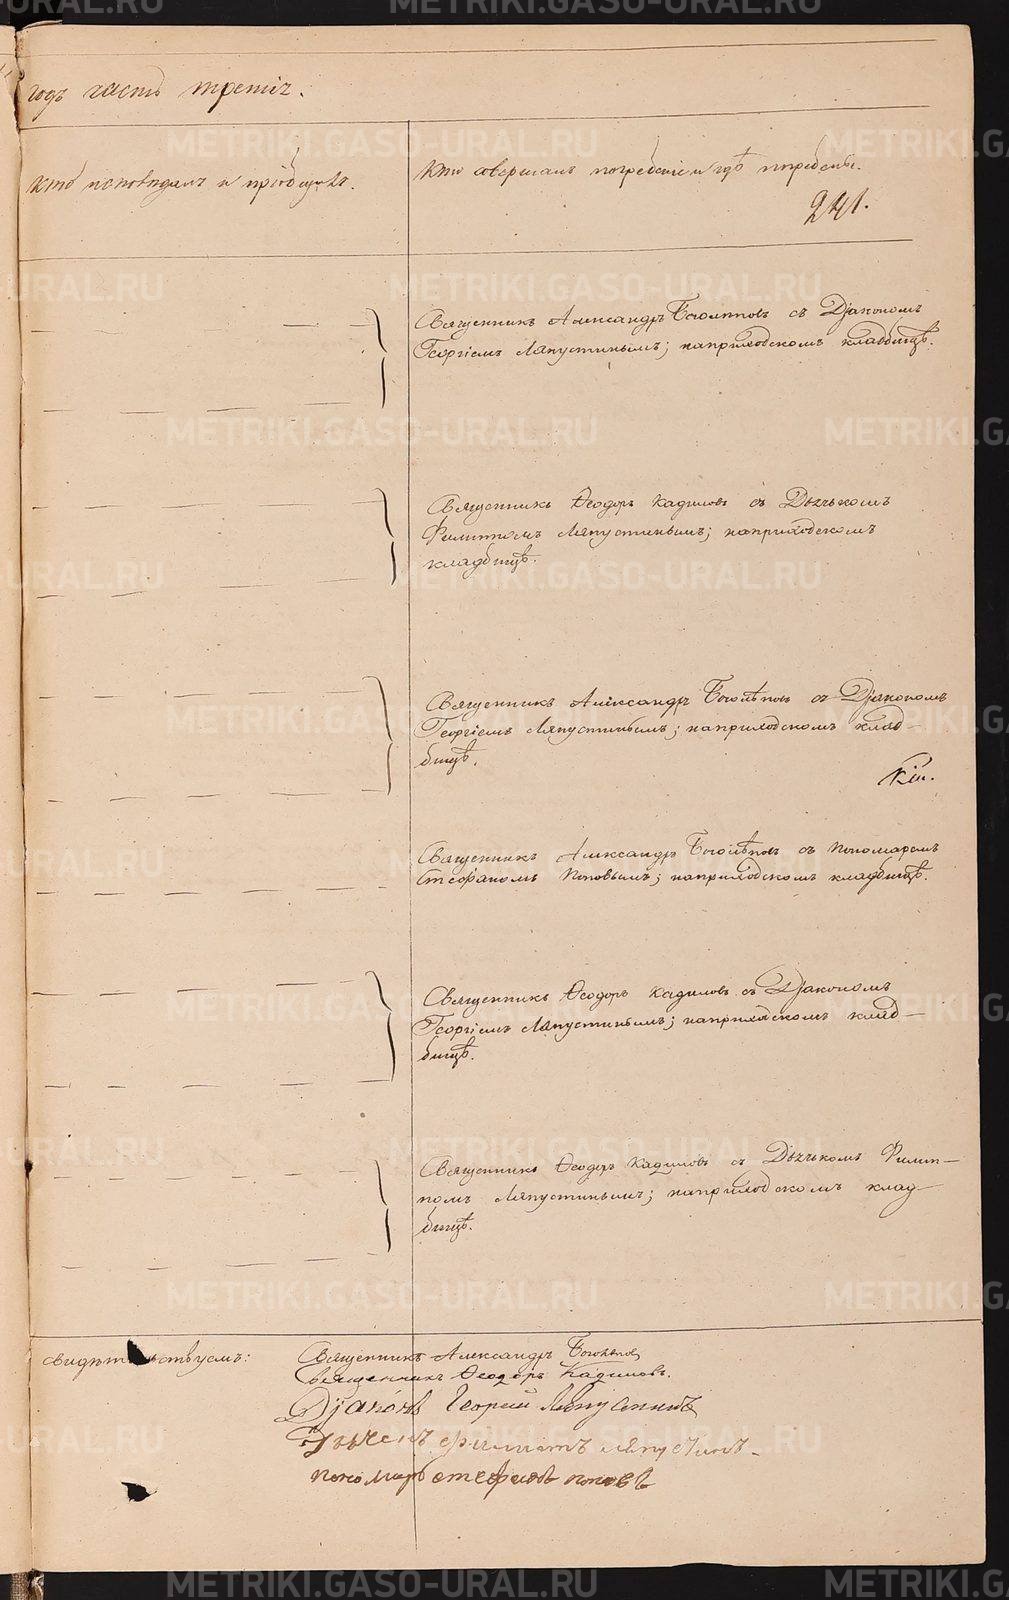 годъ часть третія.
кто исповѣдалъ и пріобщалъ.
кто совершалъ погребеніе и гдѣ погребены.
241.
Священникъ Александръ Боголѣповъ съ Діакономъ
Георгіемъ Ляпустинымъ; наприходскомъ кладбищѣ.
Священникъ Ѳеодоръ Кадиловъ съ Дьячькомъ
Филиппомъ Ляпустинымъ; наприходскомъ
кладбищѣ.
Священникъ Александръ Боголѣповъ съ Діакономъ
Георгіемъ Ляпустинымъ; наприходскомъ клад—
бищѣ.
Священникъ Александръ Боголѣповъ съ Пономаремъ
Стефаномъ Поповымъ; наприходскомъ кладбищѣ.
Священникъ Ѳеодоръ Кадиловъ съ Діакономъ
Георгіемъ Ляпустинымъ; наприходскомъ клад—
бищѣ.
Священникъ Ѳеодоръ Кадиловъ съ Дьячькомъ Филип—
помъ Ляпустинымъ; наприходскомъ клад—
бищѣ.
свидѣтельствуемъ:
Священникъ Александръ Боголѣповъ
Священникъ Ѳеодоръ Кадиловъ.
Діаконъ Георгий Ляпустинъ
Дьячекъ Филиппъ Ляпустинъ
пономарь стефанъ поповъ
METRIKI.GASO-URAL.RU